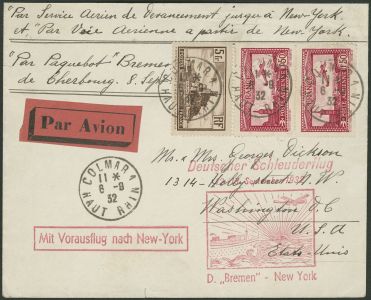 "Par Service Aerien de Devancement jusqu'a New-York
et "Par Voie Aerienne a partir de New-York.
"Par Paquebot" Bremen
de Cherbourg. 8. Sept
Par Avion
5F
RF
1F50
1F50
COLMAR
11 *
6-9
32
HAUT RHIN
Mr. & Mrs. Georges Dickson
Deutscher Schleuderflug
1314- Holly Street N.W
Washington D.C
U.S.A
Etats-Unis
Mit Vorausflug nach New-York
D. "Bremen" - New York